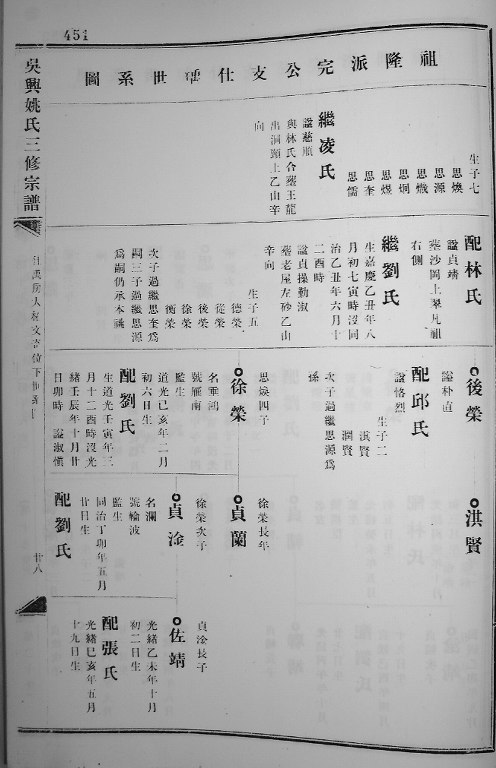 451
祖隆派完公支仕瑀世系圖
吳興姚氏三修宗譜
廿八
生子七
思煥
思源
思熾
思炯
思煜
思奎
思儒
繼凌氏
謚慈順
與林氏合塟王龍
出洞頸上乙山辛
向
配林氏
謚貞靖
塟沙岡上翠凡祖
右側
繼劉氏
生嘉慶乙丑年八
月初七寅時沒同
治乙丑年六月十
二酉時
謚貞操勤淑
塟老屋左砂乙山
辛向
生子五
德榮
後榮
從榮
徐榮
衡榮
次子過繼思奎爲
嗣三子過繼思源
爲嗣仍承本祧
後榮
謚朴直
配邱氏
謚恪烈
生子二
淇賢
澗賢
次子過繼思源爲
孫
思煥四子
徐榮
名垂鴻
號雁南
監生
道光己亥年二月
初六日生
配劉氏
生道光壬寅年三
月十二酉時沒光
緒壬辰年十月廿
日卯時 謚淑慎
淇賢
徐榮長年
貞蘭
徐榮次子
貞淦
名瀾
號輪波
監生
同治丁卯年五月
廿日生
配劉氏
貞淦長子
佐靖
光緒乙未年十月
初二日生
配張氏
光緒己亥年五月
十九日生